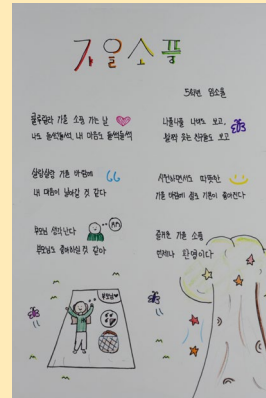 가을소풍
5학년 임소율
룰루랄라 가을 소풍 가는 날
나도 들썩들썩, 내 마음도 들썩들썩
살랑살랑 가을 바람에
내 마음이 날아갈 것 같다
부모님 생각난다
부모님도 좋아하실 것 같아
나풀나풀 나비도 보고,
활짝 웃는 친구들도 보고
시원하면서도 따뜻한
가을 바람에 절로 기분이 좋아진다
즐거운 가을 소풍
언제나 환영이다